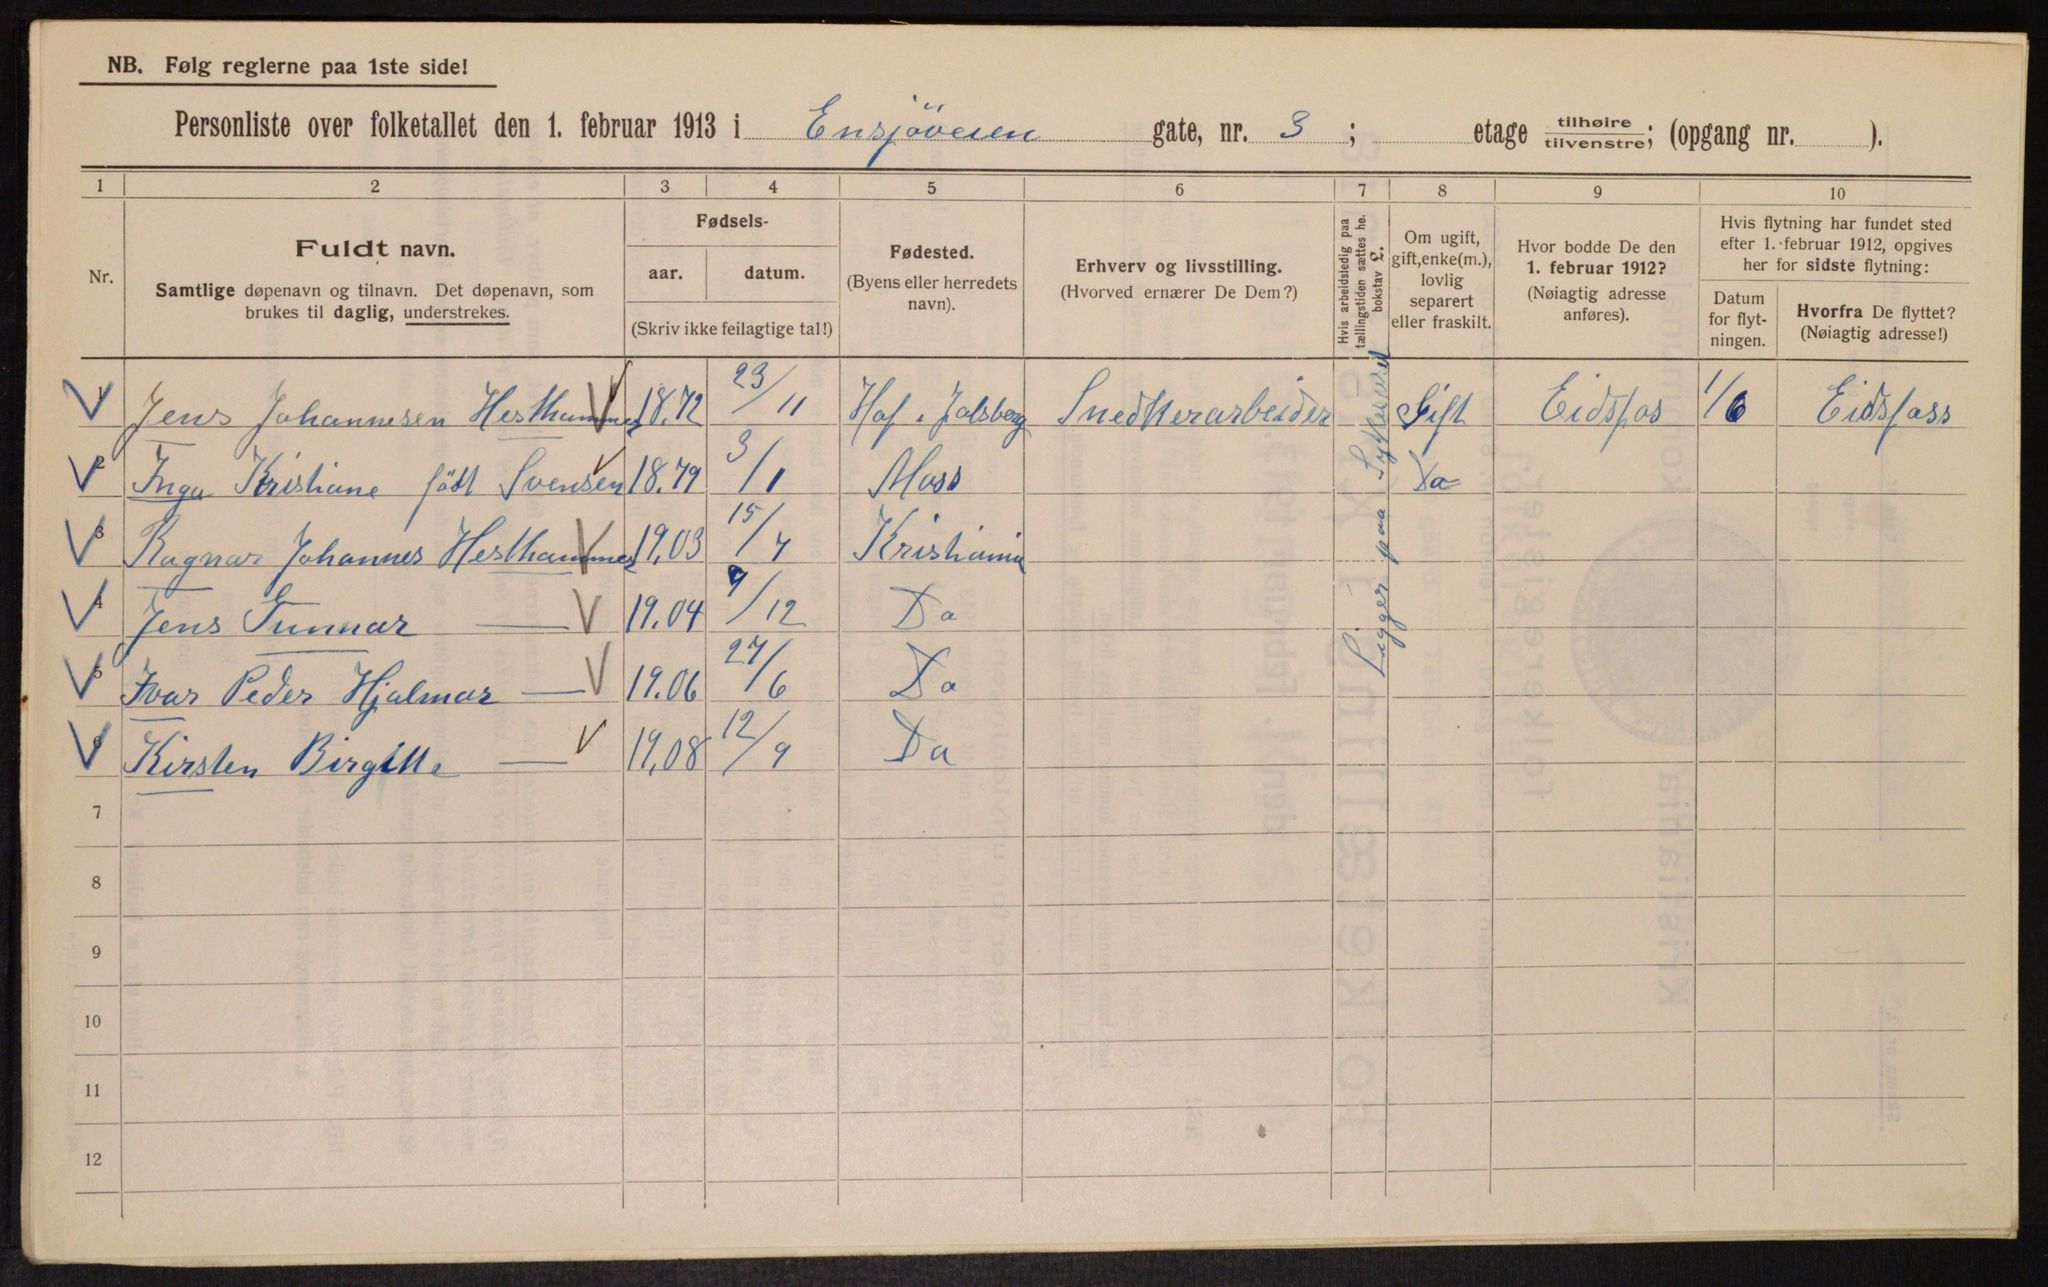 NB. Følg reglerne paa 1ste side!
Personliste over folketallet den 1. februar 1913 i Ensjöveien gate, nr. 3; etage tilhøire/tilvenstre; (opgang nr. ).
1 2 3 4 5 6 7 8 9 10
Nr.
Fuldt navn.
Samtlige døpenavn og tilnavn. Det døpenavn, som
brukes til daglig, understrekes.
Fødsels-
aar. datum.
(Skriv ikke feilagtige tal!)
Fødested.
(Byens eller herredets
navn).
Erhverv og livsstilling.
(Hvorved ernærer De Dem?)
Hvis arbeidsledig paa
tællingstiden sættes he.
bokstav L.
Om ugift,
gift, enke(m.),
lovlig
separert
eller fraskilt.
Hvor bodde De den
1. februar 1912?
(Nøiagtig adresse
anføres).
Hvis flytning har fundet sted
efter 1. februar 1912, opgives
her for sidste flytning:
Datum
for flyt-
ningen.
Hvorfra De flyttet?
(Nøiagtig adresse!)
1 Jens Johannesen Hesthammer 18.72 23/11 Hof i Jalsberg Snedkerarbeider Gift Eidsfos 1/6 Eidsfoss
2 Inga Kristiane födt Svensen 18.79 3/1 Moss Do
3 Ragnar Johannes Hesthammer 19.03 15/7 Kristiania
4 Jens Gunnar — 19.04 9/12 Do
5 Ivar Peder Hjalmar — 19.06 27/6 Do
6 Kirsten Birgitte — 19.08 12/9 Do
Ligger paa
7
8
9
10
11
12